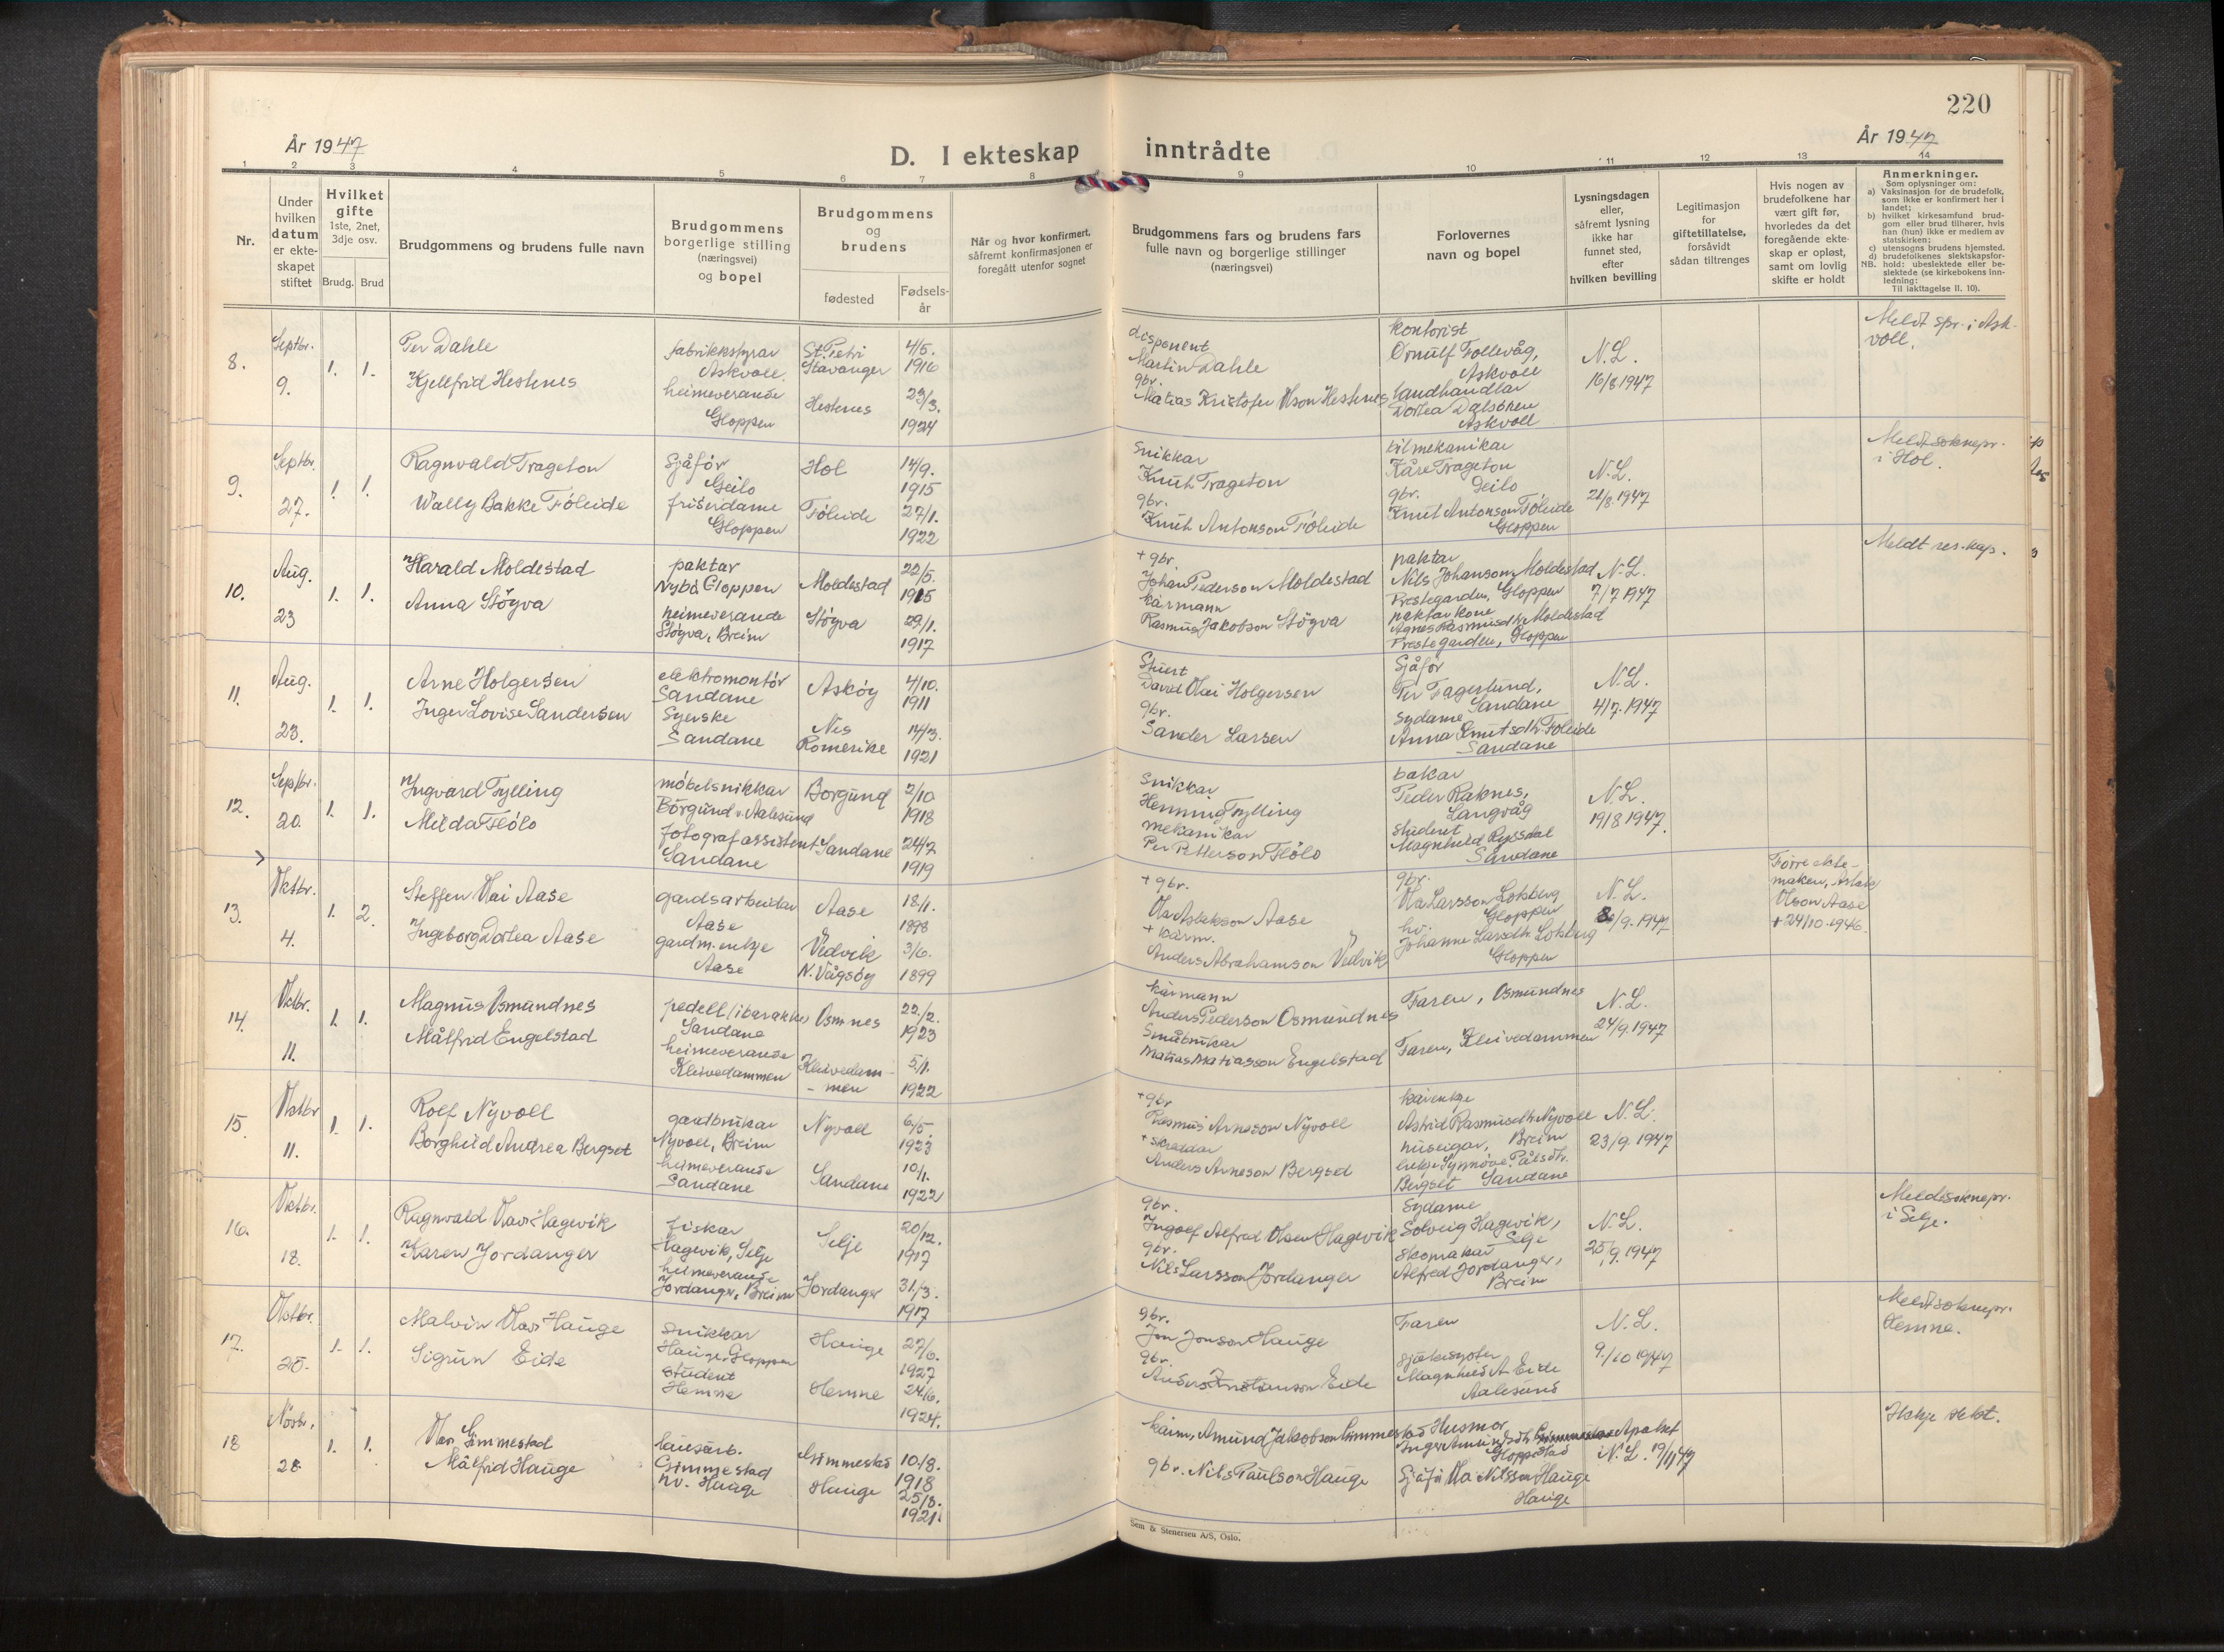 220
År 1947
År 1947
D. I ekteskap inntrådte
1 2 3 4 5 6 7 8 9 10 11 12 13 14
Nr.
Under hvilken datum er ekteskapet stiftet
Hvilket gifte
1ste, 2net, 3dje osv.
Brudg. Brud
Brudgommens og brudens fulle navn
Brudgommens borgerlige stilling (næringsvei) og bopel
Brudgommens og brudens
fødested
Fødselsår
Når og hvor konfirmert, såfremt konfirmasjonen er foregått utenfor sognet
Brudgommens fars og brudens fars fulle navn og borgerlige stillinger (næringsvei)
Forlovernes navn og bopel
Lysningsdagen eller, såfremt lysning ikke har funnet sted, efter hvilken bevilling
Legitimasjon for giftetillatelse, forsåvidt sådan tiltrenges
Hvis nogen av brudefolkene har vært gift før, hvorledes da det foregående ekteskap er opløst, samt om lovlig skifte er holdt
Anmerkninger.
Som oplysninger om:
a) Vaksinasjon for de brudefolk, som ikke er konfirmert her i landet;
b) hvilket kirkesamfund brudgom eller brud tilhører, hvis han (hun) ikke er medlem av statskirken;
c) utensogns brudens hjemsted.
d) brudefolkenes slektskapsforhold: ubeslektede eller beslektede (se kirkebokens innledning:
NB. Til iakttagelse II. 10).
8. Septbr. 9. 1. 1.
Per Dahle
Kjellfrid Hestenes
fabrikkstyrar
Askvoll.
heimeverande
Gloppen
St. Petri
Stavanger
Hestnes
4/5. 1916
23/3. 1924
disponent
Martin Dahle
gbr.
Matias Kristofer Olson Hestenes
kontorist
Ørnulf Follevåg,
Askvoll
landhandlar
Dortea Dalsbøen
Askvoll
N.L.
16/8 1947
Meldt spr. i Askvoll.
9. Septbr. 27. 1. 1.
Ragnvald Trageton
Wally Bakke Føleide
Sjåfør
Geilo
friserdame
Gloppen
Hol
Føleide
14/9. 1915
27/1. 1922
Snikkar
Knut Trageton
gbr.
Knut Antonson Føleide
bilmekanikar
Kåre Trageton
Geilo
gbr.
Knut Antonson Føleide
Gloppen
N.L.
21/8. 1947
Meldt soknepr. i Hol.
10. Aug. 23 1. 1.
Harald Moldestad
Anna Støyva
paktar
Nybø Gloppen
heimeverande
Støyva, Breim
Moldestad
Støyva
22/5. 1915
29/1. 1917
+ gbr.
Johan Pederson Moldestad
kårmann
Rasmus Jakobson Støyva
paktar
Nils Johanson Moldestad
Prestegarden, Gloppen
paktarkone
Agnes Rasmusdtr. Moldestad
Prestegarden, Gloppen
N.L.
7/7 1947
Meldt res. kap.
11. Aug. 23. 1. 1.
Arne Holgersen
Inger Lovise Sandersen
elektromontør
Sandane
Syerske
Sandane
Askøy
Nes
Romerike
4/10. 1911
14/3. 1921
Stuert
David Olai Holgersen
gbr.
Sander Larsen
Sjåfør
Per Fagerlund,
Sandane
Sydame
Anna Knutsdtr. Føleide
Sandane
N.L.
4/7. 1947
12. Septbr. 20. 1. 1.
Ingvard Fylling
Milda Flølo
møbelsnikkar
Borgund v. Aalesund
fotografassistent
Sandane
Borgund
Sandane
2/10 1918
24/7 1919
Snikkar
Henning Fylling
mekanikar
Per Petterson Flølo
bakar
Peder Raknes,
Langvåg
student
Magnhild Ryssdal
Sandane
N.L.
19/8 1947.
13. Oktbr. 4. 1. 2.
Steffen Olai Aase
Ingeborg Dortea Aase
gardsarbeidar
Aase
gardm. enkje
Aase
Aase
Vedvik
N. Vågsøy
18/1. 1898
3/6. 1899
+ gbr.
Ola Aslakson Aase
+ kårm.
Anders Abrahamson Vedvik
gbr.
Ola Larsson Lotsberg
Gloppen
hv.
Johanne Larsdtr. Lotsberg
Gloppen
N.L.
/9. 1947
Førre ekte-
maken, Aslak
Olson Aase
+ 24/10. 1946.
14. Oktbr. 11. 1. 1.
Magnus Osmundnes
Målfrid Engelstad
pedell (i barakke)
Sandane
heimeverande
Kleivedammen
Osmnes
Kleivedam-
- men
22/2. 1923
5/1. 1922
kårmann
Anders Pederson Osmundnes
Småbrukar
Matias Matiasson Engelstad
Faren, Osmundnes
Faren, Kleivedammen
N.L.
24/9. 1947
15. Oktbr 11. 1. 1.
Rolf Nyvoll
Borghild Andrea Bergset
gardbrukar
Nyvoll, Breim
heimeverande
Sandane
Nyvoll
Sandane
6/5 1923
10/1. 1922
+ gbr
Rasmus Arneson Nyvoll
+ skreddar
Anders Arneson Bergset
kårenkje
Astrid Rasmusdtr. Nyvoll
huseigar, Breim
enkje Synnøve Pålsdtr.
Bergset Sandane
N.L.
23/9. 1947
16. Oktbr. 18. 1. 1.
Ragnvald Olav Hagevik
Karen Jordanger
fiskar
Hagevik, Selje
heimeverande
Jordanger, Breim
Selje
Jordanger
20/12. 1917
31/3. 1917
gbr.
Ingolf Alfred Olsen Hagevik
gbr.
Nils Larsson Jordanger
Sydame
Solveig Hagevik,
Selje
Skomakar
Alfred Jordanger,
Breim
N.L.
25/9. 1947
Meldt soknepr.
i Selje.
17. Oktbr. 25. 1. 1.
Malvin Olav Hauge
Sigrun Eide
Snikkar
Hauge, Gloppen
Student
Hemne
Hauge
Hemne
27/6. 1927
24/6. 1924.
gbr.
Jon Jonson Hauge
gbr.
Anders Kristianson Eide
Faren
sjukesyster
Magnhild A. Eide
Aalesund
N.L.
9/10 1947
Meldt soknepr.
Hemne.
18 Novbr. 28. 1. 1.
Olav Gimmestad
Målfrid Hauge
lausarb.
Gimmestad
hv. Hauge
Gimmestad
Hauge
10/8. 1918
25/8. 1921.
kårm. Amund Jakobson Gimmestad
gbr. Nils Paulson Hauge
Husmor
Inger Amundsdtr. Apalset
Gloppen
Sjåfør Ola Nilsson Hauge
Hauge
N.L. 19/11 47
Sem & Stenersen A/S, Oslo.